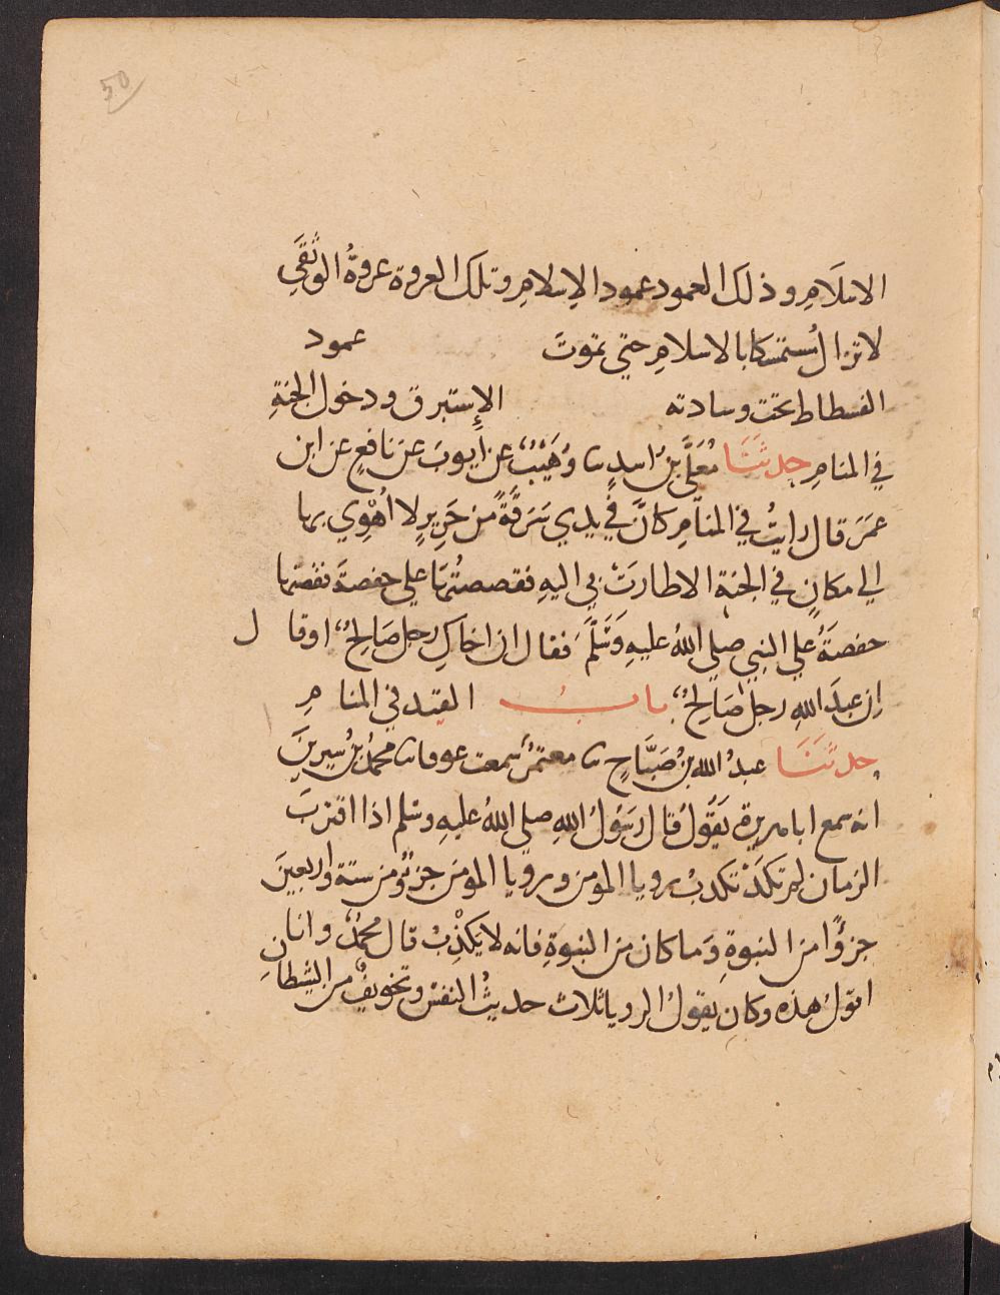 50
الاسلَامِ وذلك العمود عمود الاِسلامِ وتلك العروة عروةُ الوُثقَي
لا تزال مُستمسكا بالاسلامِ حتي تموتَ عمود
الفسطاط تحت وسادته الإستبرق ودخول الجنةِ
في المنامِ حدثنَا مُعَلَّي بنُ اسدٍ ثنا وُهَيْبٌ عن ايوبَ عن نافعٍ عن ابن
عمَرَ قال رايتُ في المنامِ كانَّ في يدي سَرَقَةً من حَرِيرٍ لا اُهْوِي بها
الي مكانٍ في الجنة الا طارَتْ بي اليهِ فقصصتُها علي حفصةَ فقصتها
حفصَةُ علي النبي صلي اللهُ عليهِ وَسَلَّمَ فقال ان اخاكِ رجل صَالِحٌ اوقال
اِن عبدَ اللهِ رجل صَالِحٌ بابُ القيد في المنامِ
حدثنَا عبدُ اللهِ بنُ صَبَّاحٍ ثنا معتمرٌ سمعت عوفا ثنا محمدُ بنُ سِيرِينَ
انه سمع ابا هريرة يَقُولُ قال رَسُولُ اللهِ صلي اللهُ عليهِ وسلم اذا اقتربَ
الزمان لم تكَدْ تكذبُ رويا المومن ورويا المومن جزءٌ من ستة واربعينَ
جزءًا من النبوةِ وَما كان من النبوةِ فانه لا يَكْذِبُ قال محمدٌ وانا
اقولُ هذه وكان يقولُ الرويا ثلاث حديثُ النفسِ وتخويفٌ من الشيطانِ